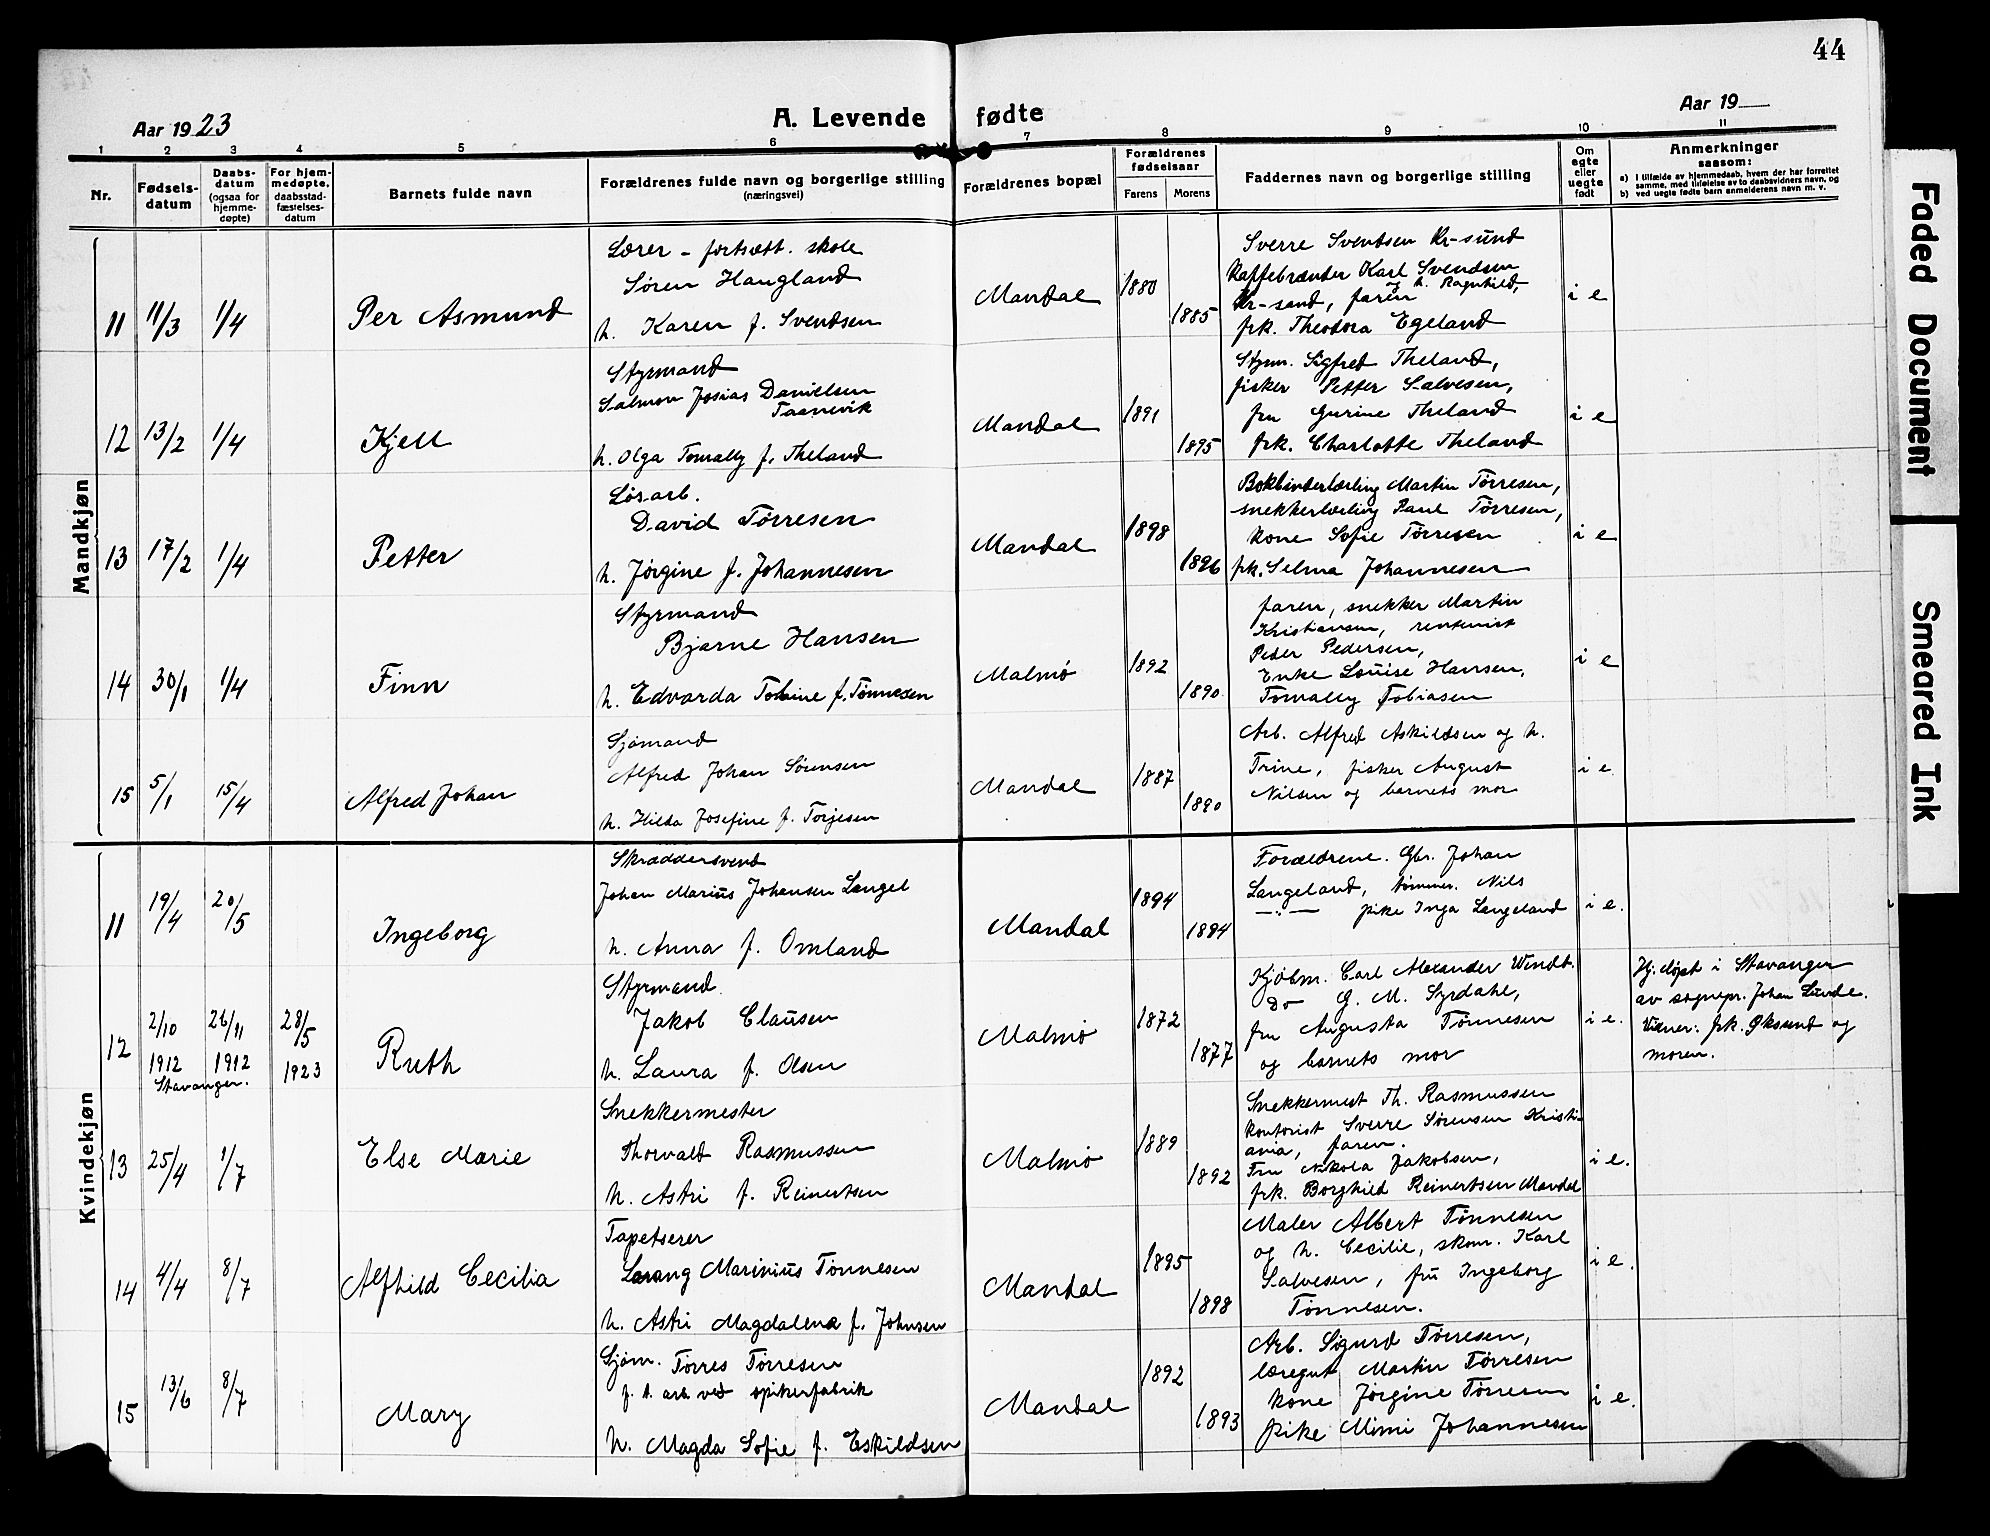 44
Aar 1923
A. Levende fødte
Aar 19
1 2 3 4 5 6 7 8 9 10 11
Nr.
Fødselsdatum
Daabsdatum (ogsaa for hjemmedøpte)
For hjemmedøpte. daabsstadfæstelsesdatum
Barnets fulde navn
Forældrenes fulde navn og borgerlige stilling (næringsvei)
Forældrenes bopæl
Forældrenes fødselsaar
Farens Morens
Faddernes navn og borgerlige stilling
Om egte eller uegte født
Anmerkninger
saasom:
a) I tilfælde av hjemmedaab, hvem der har forrettet samme, med tilføielse av to daabsvidners navn, og
b) ved uegte fødte barn anmelderens navn m. v.
Mandkjøn
11 11/3 1/4 Per Asmund
Lærer - fortsætt. skole
Søren Haugland
h. Karen f. Svendsen
Mandal 1880 1885
Sverre Svendsen Kr-sund
Kaffebrænder Karl Svendsen
og h. Ragnhild,
Kr-sand, faren
frk. Theodora Egeland
i e
12 13/2 1/4 Kjell
Styrmand
Salmon Josias Danielsen
Taanevik
h. Olga Tomally f. Theland
Mandal 1891 1895
Styrm. Sigfred Theland,
fisker Petter Salvesen,
fru Gurine Theland
frk. Charlotte Theland
i e
13 17/2 1/4 Petter
Løsarb.
David Tørresen
h. Jørgine f. Johannesen
Mandal 1898 1896
Bokbinderlærling Martin Tørresen,
snekkerlærling Paul Tørresen,
kone Sofie Tørresen
frk. Selma Johannesen
i e
14 30/1 1/4 Finn
Styrmand
Bjarne Hansen
h. Edvarda Tobine f. Tønnesen
Malmø 1892 1890
faren, snekker Martin
Kristiansen, rentenist
Peder Pedersen,
Enke Louise Hansen,
Tomally Tobiasen
i e
15 5/1 15/4 Alfred Johan
Sjømand
Alfred Johan Sørensen
h. Hilda Josefine f. Torjesen
Mandal 1887 1890
Arb. Alfred Askildsen og h.
Trine, fisker August
Nilsen og barnets mor
i e
Kvindekjøn
11 19/4 20/5 Ingeborg
Skræddersvend
Johan Marius Johansen Langel
h. Anna f. Omland
Mandal 1894 1894
Forældrene. Gbr. Johan
Langeland, tømmer. Nils
—"— pike Inga Langeland
i e.
12 2/10 1912 Stavanger. 26/11 1912 28/5 1923 Ruth
Styrmand
Jakob Clausen
h. Laura f. Olsen
Malmø 1872 1877
Kjøbm. Carl Alexander Wendt.
Do G. M. Syrdahl,
fru Augusta Tønnesen
og barnets mor
i e.
Hj. døpt i Stavanger
av sognepr. Johan Lunde.
Vidner: frk. Øksund og
moren.
13 25/4 1/7 Else Marie
Snekkermester
Thorvald Rasmussen
h. Astri f. Reinertsen
Malmø 1889 1892
Snekkermest Th. Rasmussen
kontorist Sverre Sørensen Kristi-
ania, faren.
Fru Nikola Jakobsen,
frk. Borghild Reinertsen Mandal
i e.
14 4/4 8/7 Alfhild Cecilia
Tapetserer
Lorang Marinius Tønnesen
h. Astri Magdalena f. Johnsen
Mandal 1895 1898
Maler Albert Tønnesen
og h. Cecilie, skom. Karl
Salvesen, frü Ingeborg
Tønnesen.
i e.
15 13/6 8/7 Mary
Sjøm. Tørres Tørresen
f. t. arb. ved spikerfabrik
h. Magda Sofie f. Eskildsen
Mandal 1892 1893
Arb. Sigurd Tørresen,
læregut Martin Tørresen
kone Jørgine Tørresen
pike Mimi Johannesen
i e.
Faded Document
Smeared Ink